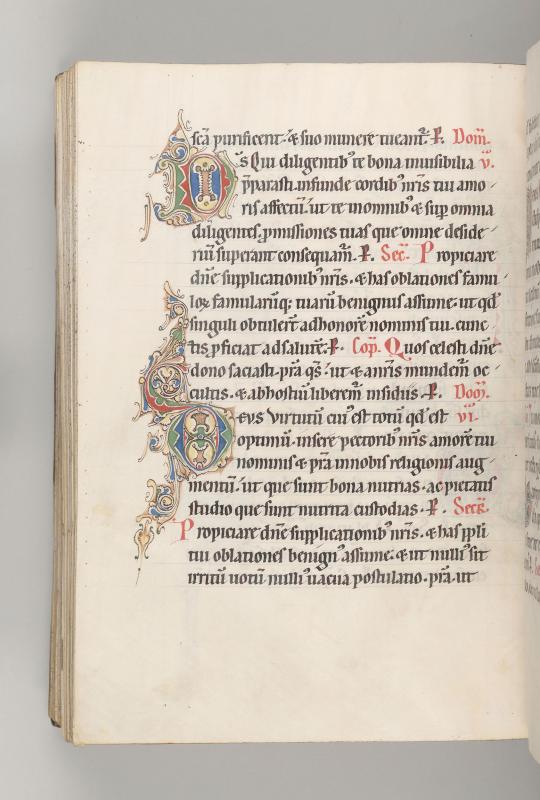 sc̄a purificent. & suo munere tueant᷑. P. Dom̄.
D s̄ Qui diligentib; te bona inuisibilia v.
p̄parasti. infunde cordib; nr̄is tui amo
ris affectū. ut te in omnib; & sup omnia
diligentes. ꝓmissiones tuas que omne deside
riū superant consequam̄. P. Secr̄. Propiciare
dn̄e supplicationib; nr̄is. & has oblationes famu
loꝝ famularūq; tuarū benignus assume. ut qd̄
singuli obtulerr̄ ad honorē nominis tui. cunc
tis ꝓficiat ad salutē. P. Cōp. Quos celesti dn̄e
dono saciasti. pr̄a qs̄. ut & a nr̄is mundem̄ oc
cultis. & ab hostiū liberem̄ insidiis. P. Dom̄.
DEVS Virtutū cui᷒ est totū qd̄ est vi.
optimū. insere pectorib; nr̄is amorē tui
nominis & pr̄a in nobis religionis aug
mentū. ut que sunt bona nutrias. ac pietatis
studio que sunt nutrita custodias. P. Secr̄.
Propiciare dn̄e supplicationib; nr̄is. & has ppl̄i
tui oblationes benign᷒ assume. & ut nulli᷒ sit
irritū uotū. nulli᷒ uacua postulatio. pr̄a. ut